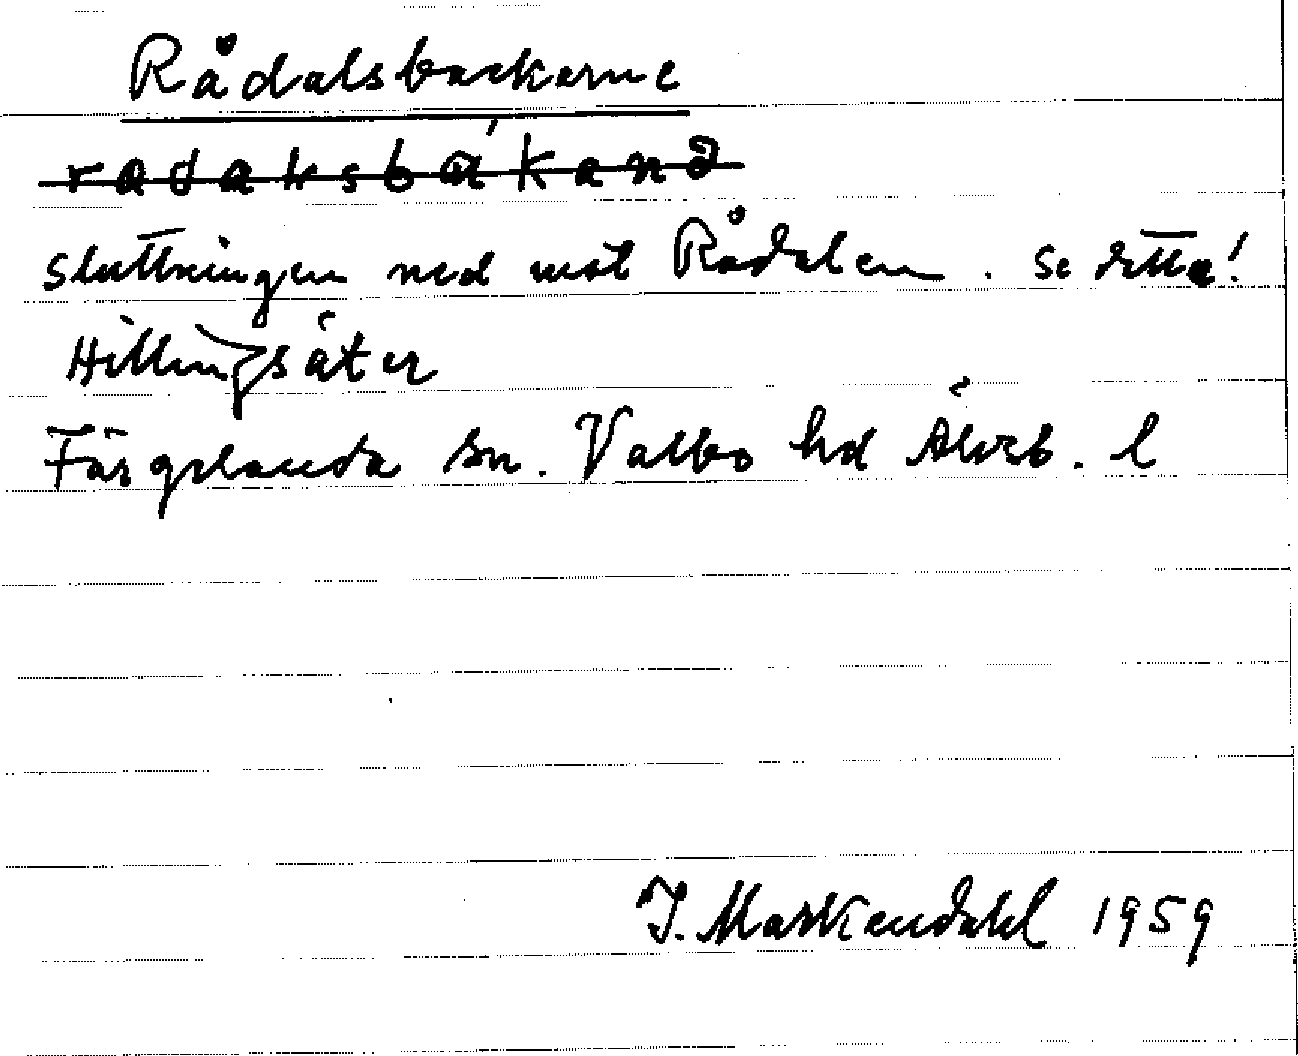 Rådalsbackerne
radaksbákanə
sluttningen ned mot Rådalen. Se detta!
Hillingsäter
Färgelanda sn. Valbo hd Älvsb. l
J. Markendahl 1959